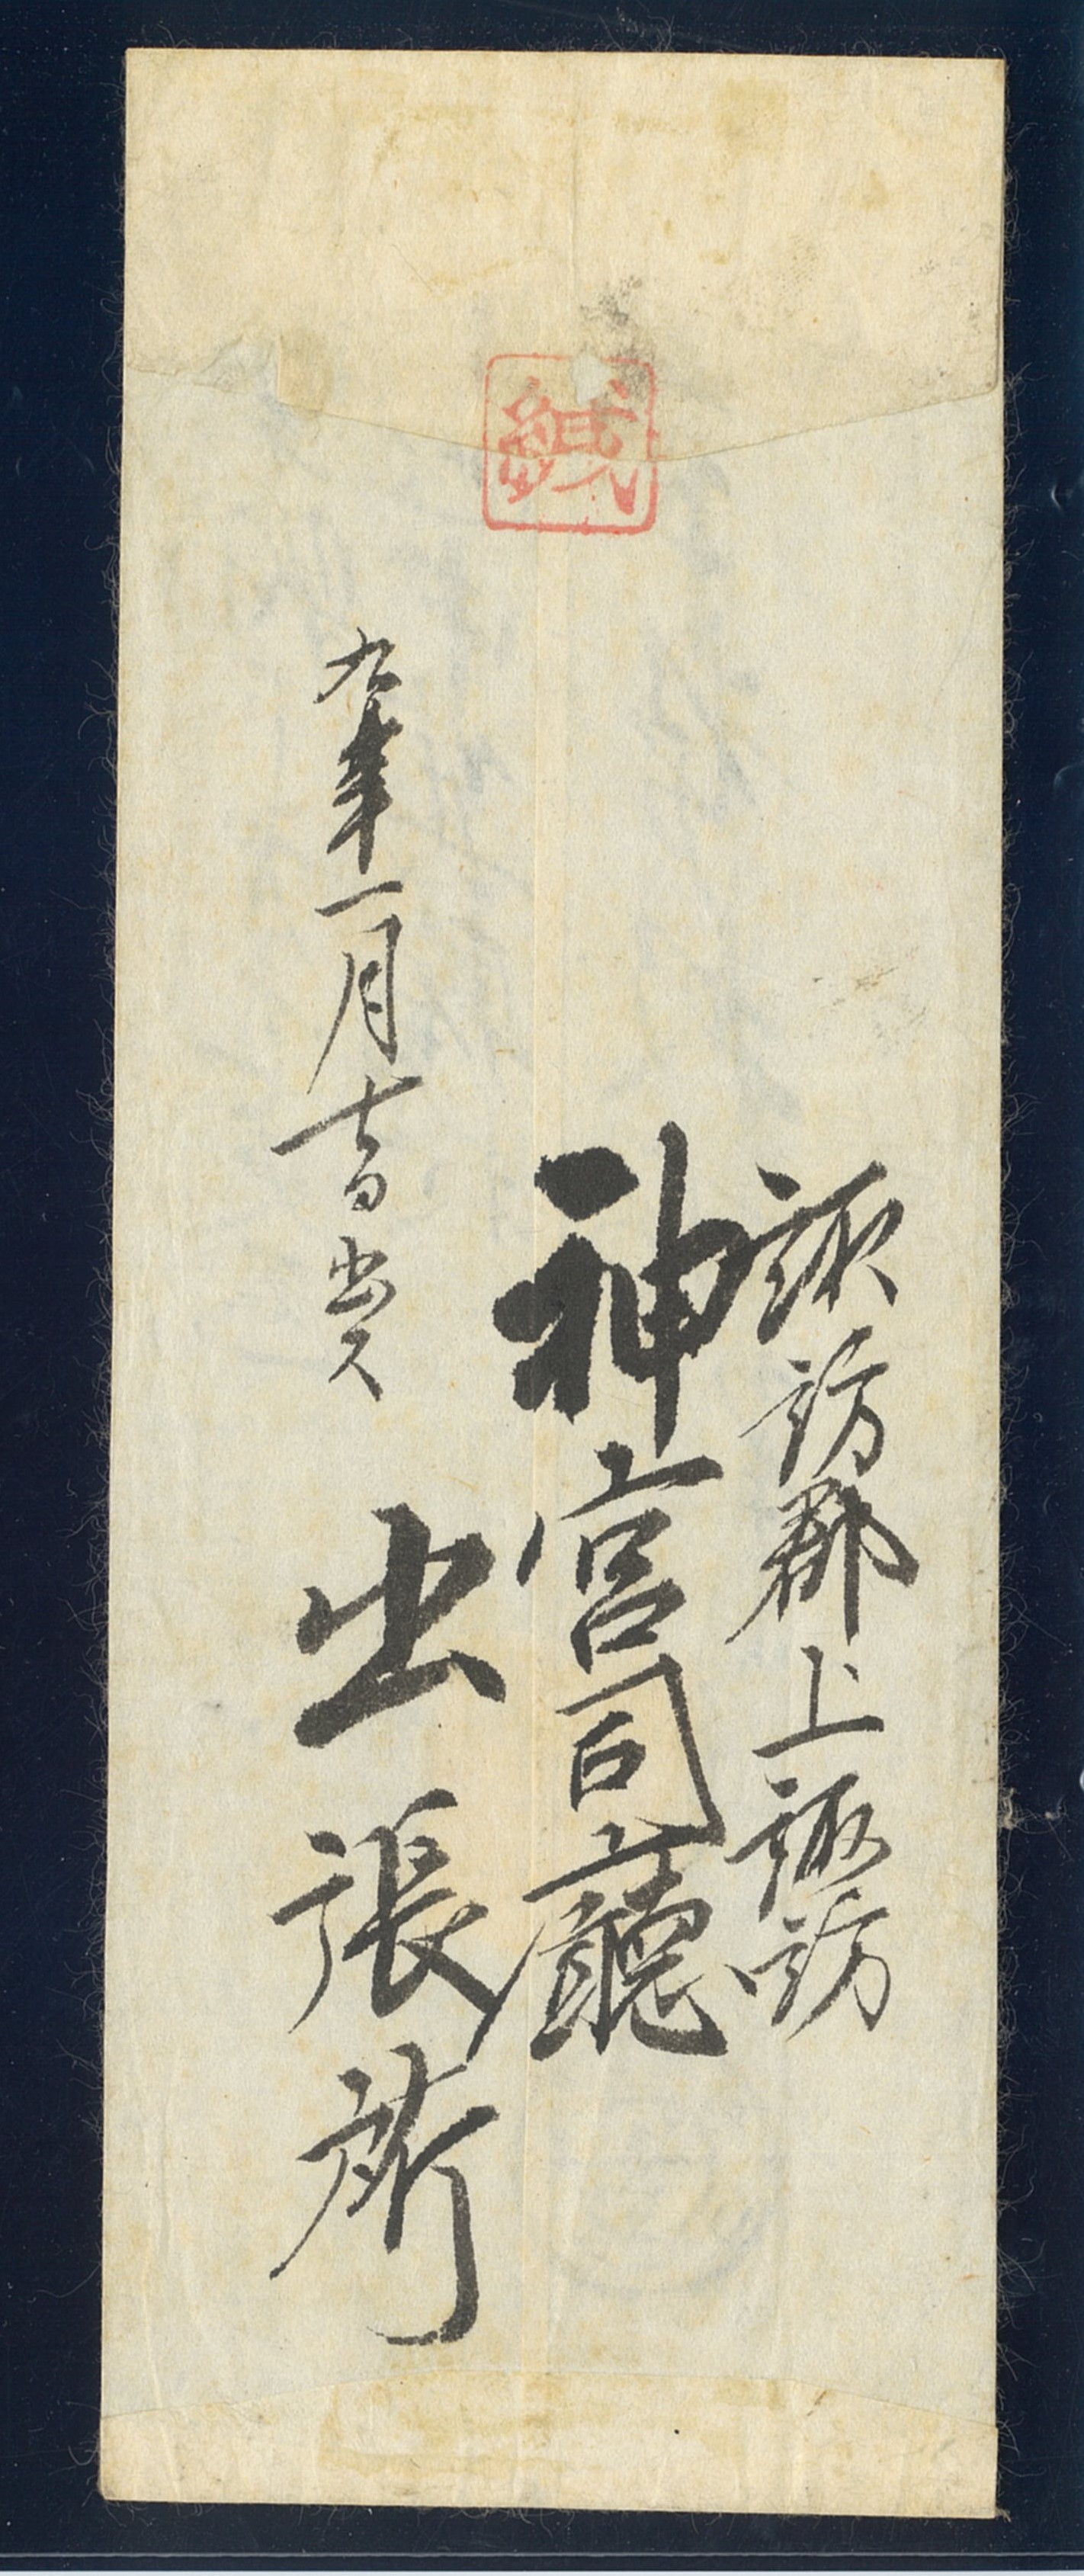 緘
諏訪郡上諏訪
神宮司廳
出張所
九年一月 日出ス